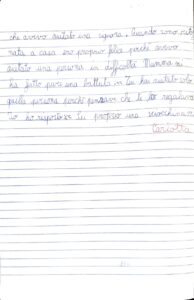 che avevo aiutato una signora. Quando sono ritor
nata a casa ero proprio felice perché avevo
aiutato una persona in difficoltà. Mamma mi
ha fatto pure una battuta: Tu hai aiutato
quella persona perché pensavi che te regalava
Io ho risposto: Tu proprio una
Carlotta